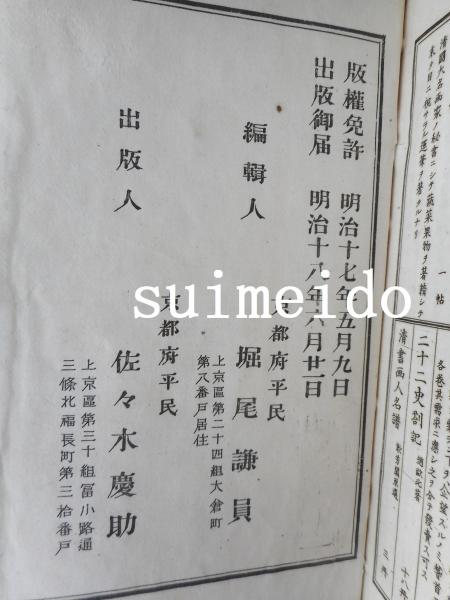 清國大名画家ノ秘書ニシテ蔬菜果物ヲ著
一帖
二十二史劄記
清書画人名譜
版權免許 明治十七年五月九日
出版御届 明治十八年六月廿二日
編輯人
京都府平民
堀尾謙員
上京區第二十四組大倉町
第八番戸居住
出版人
京都府平民
佐々木慶助
上京區第三十組冨小路通
三條北福長町第三拾番戸
suimeido